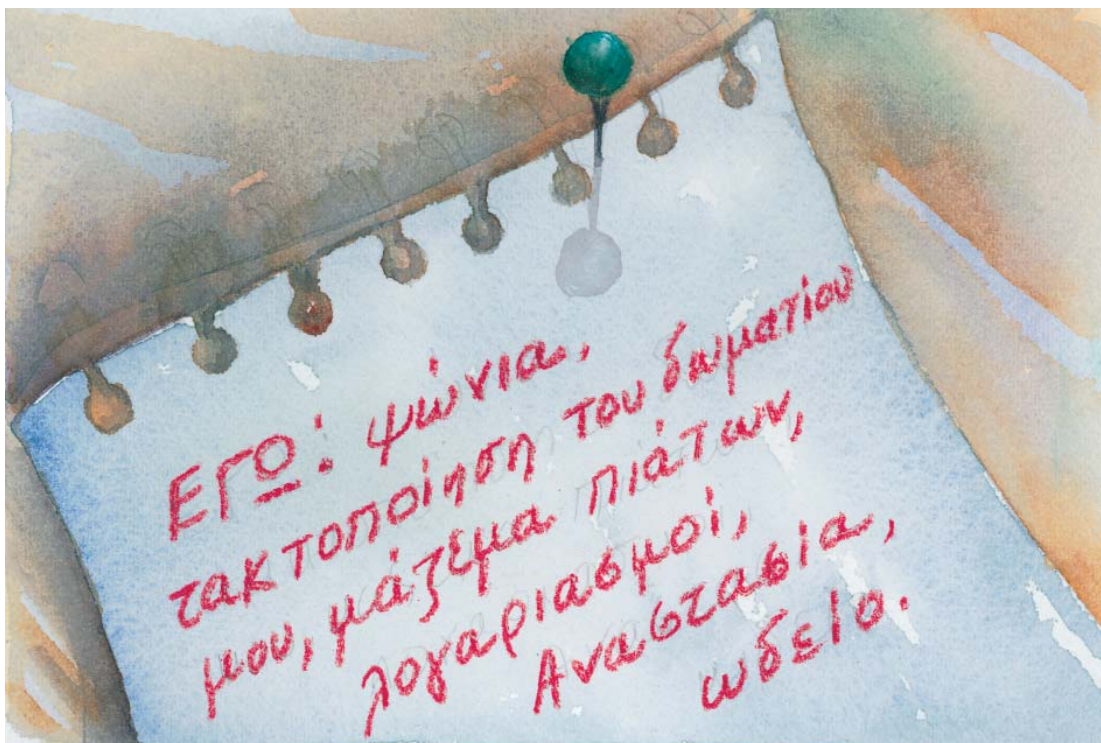 ΕΓΩ: ψώνια,
τακτοποίηση του δωματίου
μου, μάζεμα πιάτων,
λογαριασμοί,
Αναστασία,
ωδείο.